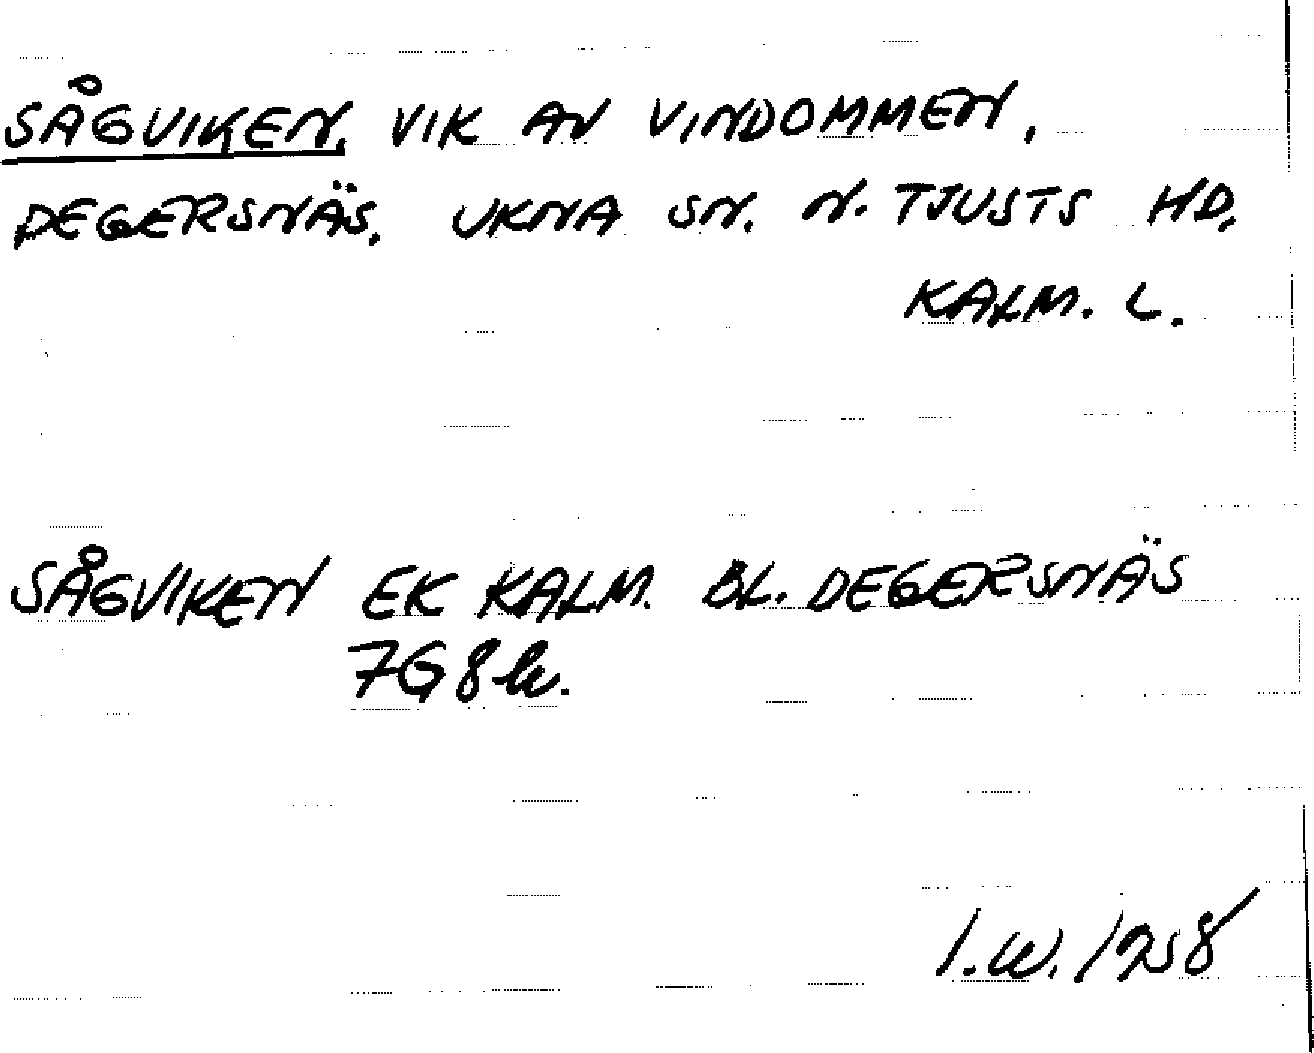 SÅGVIKEN, VIK AV VINDOMMEN,
DEGERSNÄS, UKNA SN. N. TJUSTS HD,
KALM. L.
SÅGVIKEN EK KALM. BL. DEGERSNÄS
7G8h.
I.W. 1958